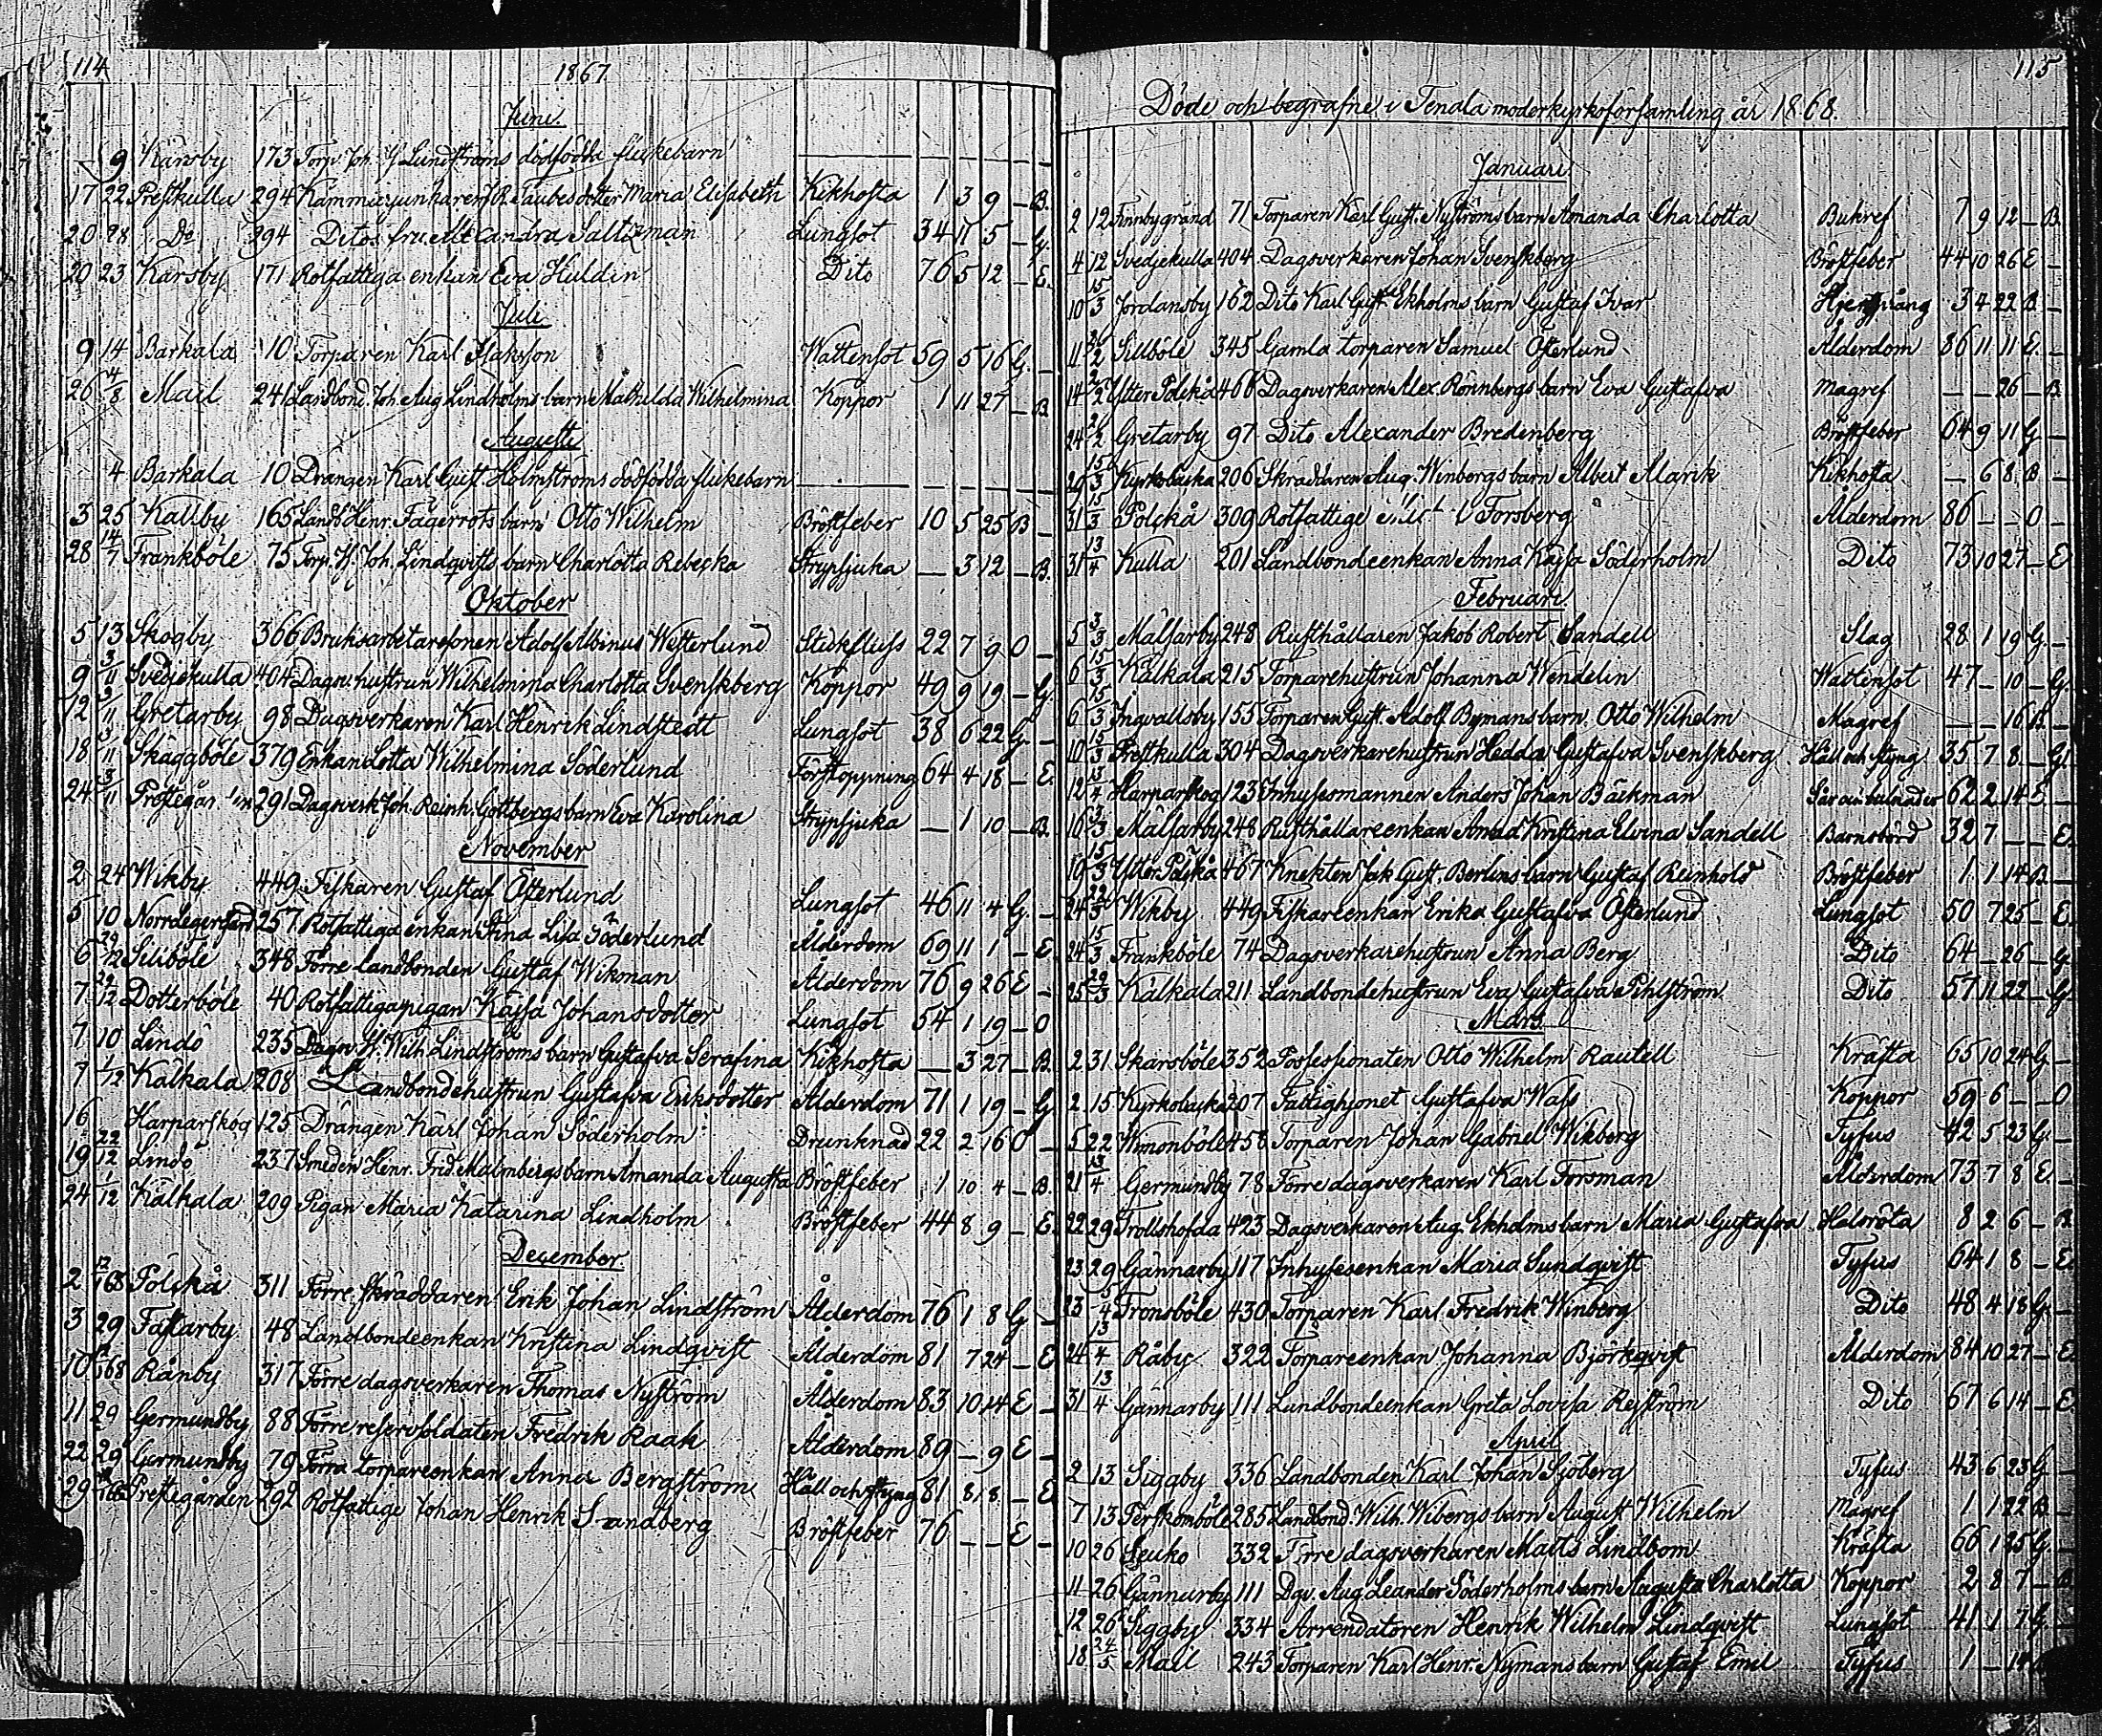 114
1867
Juni.
9 Karsby 173 Torp. Joh. Hj. Lundströms dödfödda flickebarn — — — — —
17 22 Prestkulla 294 Kammarjunkaren R. Taubes dotter Maria Elisabeth Kikhosta 1 3 9 — B.
20 28 Do 294 Ditos fru Alexandra Saltzman Lungsot 34 11 5 — G.
20 23 Karsby 171 Rotfattiga enkan Eva Huldin Dito 76 5 12 — E.
Juli.
9 14 Barkala 10 Torparen Karl Isaksson Wattensot 59 5 16 G. —
26 4/8 Mail 241 Landbond. Joh. Aug. Lindholms barn Mathilda Wilhelmina Koppor 1 11 27 — B.
Augusti
4 Barkala 10 Drängen Karl Gust. Holmströms dödfödda flickebarn — — — — —
3 25 Kallby 165 Landb. Henr. Fagerrots barn Otto Wilhelm Bröstfeber 10 5 25 B —
28 14/7 Frankböle 75 Torp. H. Joh. Lindqvists barn Charlotta Rebecka Strypsjuka — 3 12 — B.
Oktober
5 13 Skogby 366 Bruksarbetaresonen Adolf Albinus Westerlund Stickfluss 22 7 9 O —
9 3/11 Svedjekulla 404 Dagsv. hustrun Wilhelmina Charlotta Svenskberg Koppor 49 9 19 — G.
12 3/11 Gretarby 98 Dagsverkaren Karl Henrik Lindstedt Lungsot 38 6 22 G. —
18 3/11 Skäggböle 379 Enkan Lotta Wilhelmina Söderlund Förstoppning 64 4 18 — E.
24 3/11 291 Dagsverk. Joh. Reinh. Gottbergs barn Eva Karolina Strypsjuka — 1 10 — B.
November
2 24 Wikby 449 Fiskaren Gustaf Österlund Lungsot 46 11 4 G. —
5 10 Norrdegergård 257 Rotfattiga enkan Stina Lisa Söderlund Ålderdom 69 11 1 — E.
6 29/12 Sillböle 348 Förre landbonden Gustaf Wikman Ålderdom 76 9 26 E —
7 29/12 Dotterböle 40 Rotfattiga pigan Kajsa Johansdotter Lungsot 54 1 19 — O
7 10 Lindö 235 Dagsv. K. Wilh. Lindströms barn Gustafva Serafina Kikhosta — 3 27 — B.
7 1/12 Kälkala 208 Landbondehustrun Gustafva Eriksdotter Ålderdom 71 1 19 — G.
16 Harparskog 125 Drängen Karl Johan Söderholm Drunknad 22 2 16 O —
19 22/12 Lindö 237 Smeden Henr. Fred. Malmbergs barn Amanda Augusta Bröstfeber 1 10 4 — B.
24 1/12 Kälkala 209 Pigan Maria Katarina Lindholm Bröstfeber 44 8 9 — E.
December.
2 12/1 68 Polskå 311 Förre skräddaren Erik Johan Lindström Ålderdom 76 1 8 G —
3 29 Fastarby 48 Landbondeenkan Kristina Lindqvist Ålderdom 81 7 24 — E
10 68 Rånby 317 Förre dagsverkaren Thomas Nyström Ålderdom 83 10 14 E —
11 29 Germundby 88 Förre reservsoldaten Fredrik Raak Ålderdom 89 — 9 E —
22 29 Germundby 79 Förra torpareenkan Anna Bergström Håll och styng 81 8 8 — E
29 Prestegården 292 Rotfattige Johan Henrik Strandberg Bröstfeber 76 — — E —
115
Döde och begrafne i Tenala moderkyrkoförsamling år 1868.
Januari.
2 12 Finnbygränd 71 Torparen Karl Gust. Nyströms barn Amanda Charlotta Bukref 7 9 12 — B
4 12 Svedjekulla 404 Dagsverkaren Johan Svenskberg Bröstfeber 44 10 26 E —
10 15/3 Jordansby 162 Dito Karl Gust. Ekholms barn Gustaf Ivar 3 4 22 B —
11 2/2 Sillböle 345 Gamla torparen Samuel Österlund Ålderdom 86 11 11 E. —
14 2/2 Ytter Polskå 466 Dagsverkaren Alex. Rönnbergs barn Eva Gustafva Magref — — 26 — B
24 2/2 Gretarby 97 Dito Alexander Bredenberg Bröstfeber 64 9 11 G. —
26 15/3 Kyrkobacka 206 Skräddaren Aug. Winbergs barn Albert Marik Kikhosta — 6 8 B —
31 15/3 Polskå 309 Rotfattige Forsberg Ålderdom 86 — — O —
31 13/4 Kulla 201 Landbondeenkan Anna Kajsa Söderholm Dito 73 10 27 — E
Februari.
5 3/3 Malsarby 248 Rusthållaren Jakob Robert Sandell Slag 28 1 19 G. —
6 15/3 Kälkala 215 Torparehustrun Johanna Wendelin Wattensot 47 — 10 — G.
6 15/3 Ingvallsby 155 Torparen Gust. Adolf Bymans barn Otto Wilhelm Magref — — 16 B. —
10 15/3 Prestkulla 304 Dagsverkarehustrun Hedda Gustafva Svenskberg Håll och styng 35 7 8 — G.
12 13/4 Harparskog 123 Inhysesmannen Anders Johan Bäckman 62 2 14 E. —
16 3/3 Malsarby 248 Rusthållareenkan Amanda Kristina Elvina Sandell Barnsbörd 32 7 — — E.
16 15/3 Ytter Polskå 467 Knekten Jak. Gust. Berlins barn Gustaf Reinhold Bröstfeber 1 1 14 B. —
24 22/3 Wikby 449 Fiskareenkan Erika Gustafva Österlund Lungsot 50 7 25 — E.
24 15/3 Frankböle 74 Dagsverkarehustrun Anna Berg Dito 64 — 26 — G.
25 29/3 Kälkala 211 Landbondehustrun Eva Gustafva Pihlström Dito 57 11 22 — G.
Mars.
2 31 Skarsböle 352 Possessionaten Otto Wilhelm Rautell Kräfta 65 10 24 G —
2 15 Kyrkobacka 207 Fattighjonet Gustafva Wass Koppor 59 6 — — O
5 22 Wimonböle 458 Torparen Johan Gabriel Wikberg Tyfus 42 5 23 G. —
21 13/4 Germundby 78 Förre dagsverkaren Karl Forsman Ålderdom 73 7 8 E. —
22 29 Trollshofda 423 Dagsverkaren Aug. Ekholms barn Maria Gustafva Halsröta 8 2 6 — B.
23 29 Gännarby 117 Inhysesenkan Maria Sundqvist Tyfus 64 1 8 — E.
23 5/4 Fronsböle 430 Torparen Karl Fredrik Winberg Dito 48 4 18 G. —
24 13/4 Råby 322 Torpareenkan Johanna Björkqvist Ålderdom 84 10 27 — E
31 13/4 Gännarby 111 Landbondeenkan Greta Lovisa Reiström Dito 67 6 14 — E.
April
2 13 Siggby 336 Landbonden Karl Johan Sjöberg Tyfus 43 6 23 G —
7 13 Perskomböle 285 Landbond. Wilh. Wibergs barn August Wilhelm Magref 1 1 22 B —
10 26 Seuko 332 Förre dagsverkaren Matts Lindbom Kräfta 66 1 25 G. —
11 26 Gännarby 111 Dgv. Aug. Leander Söderholms barn Augusta Charlotta Koppor 2 8 7 — B
12 26 Siggby 334 Arrendatoren Henrik Wilhelm Lindqvist Lungsot 41 1 7 G. —
18 24/5 Mail 243 Torparen Karl Henr. Nymans barn Gustaf Emil Tyfus 1 — 14